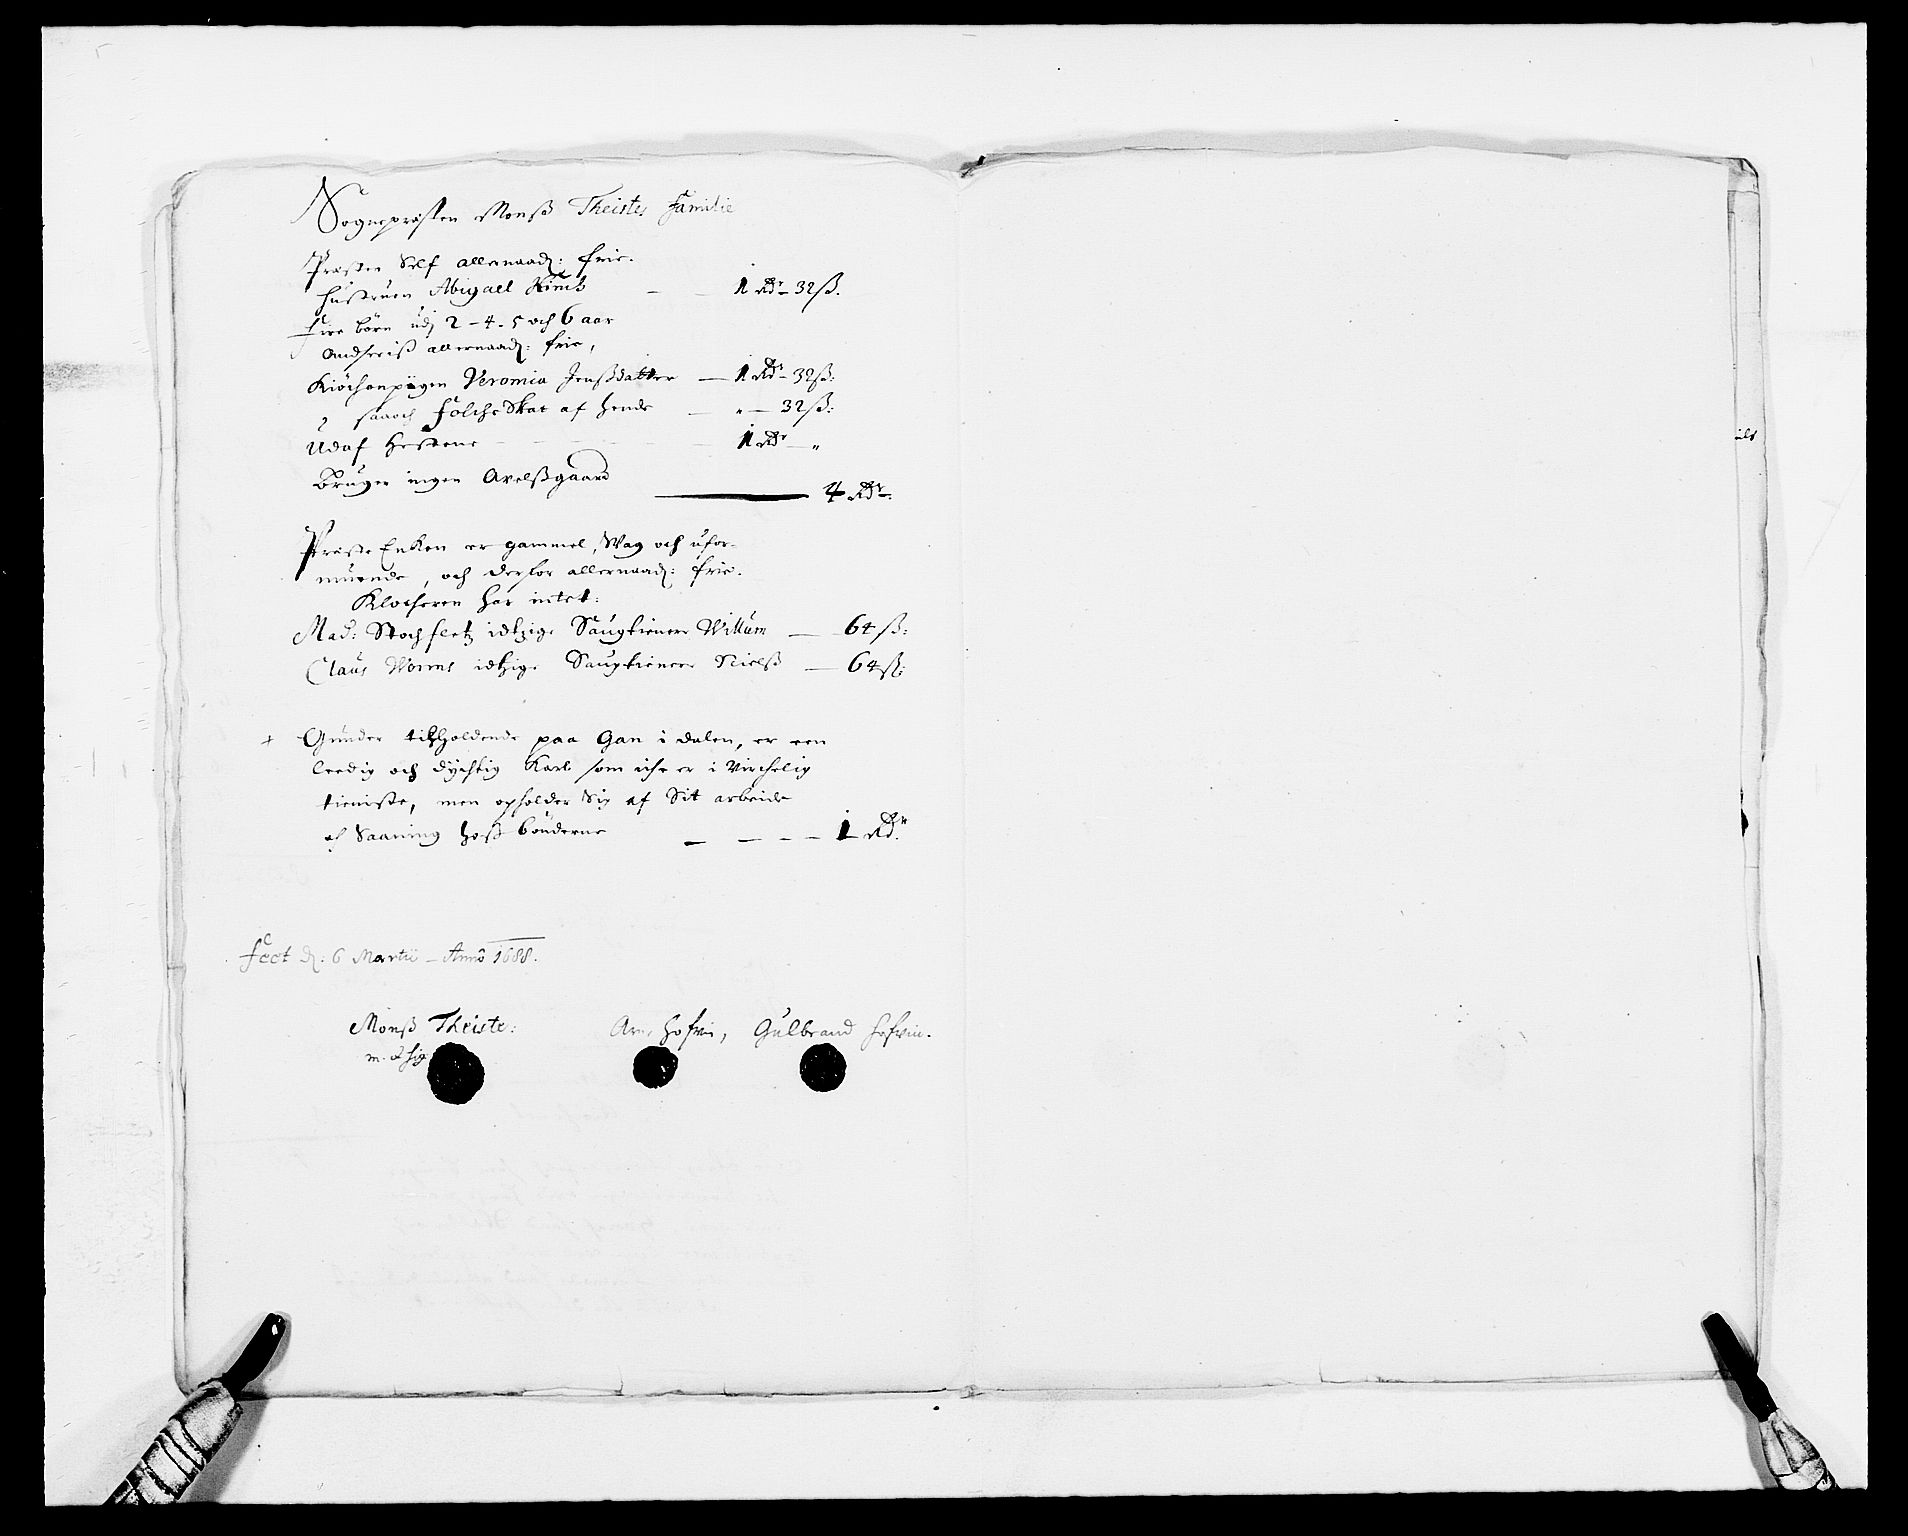 Sognepresten Monß Theistes Familie
Præsten Self allernaad: frie.
Hustruen Abigael — — 1 Rdr – 32 ß.
Fire børn udj 2 – 4 – 5 och 6 aar
allernaad: frie,
Kiöchenpigen Veromia Jenßdatter — 1 Rdr – 32 ß:
saaoch Folche Skat af hende — " — 32 ß:
Udaf Hestene — 1 Rdr — "
Bruger ingen Avelßgaard
4 Rdr:
Præste Enken er gammel, Svag och ufor-
muende, och derfor allernaad: frie.
Klocheren har intet:
Mad: Stochfletz idtzige Saugtienere Willum — 64 ß:
Claus Worms idtzige Saugtienere Nielß — 64 ß:
+ Gunder tilholdende paa Gan i dalen, er een
leedig och dychtig Karl som iche er i Virchelig
tieniste, men opholder Sig af Sit arbeide
och Saaning hoß bönderne — — — — 1 Rdr.
d: 6 Martii – Anno 1688.
Monß Theiste: Arne Hofvin, Gulbrand Hofvin.